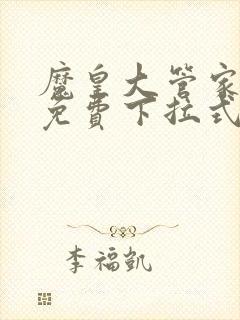 魔皇大管家
免費下拉式
李福凱